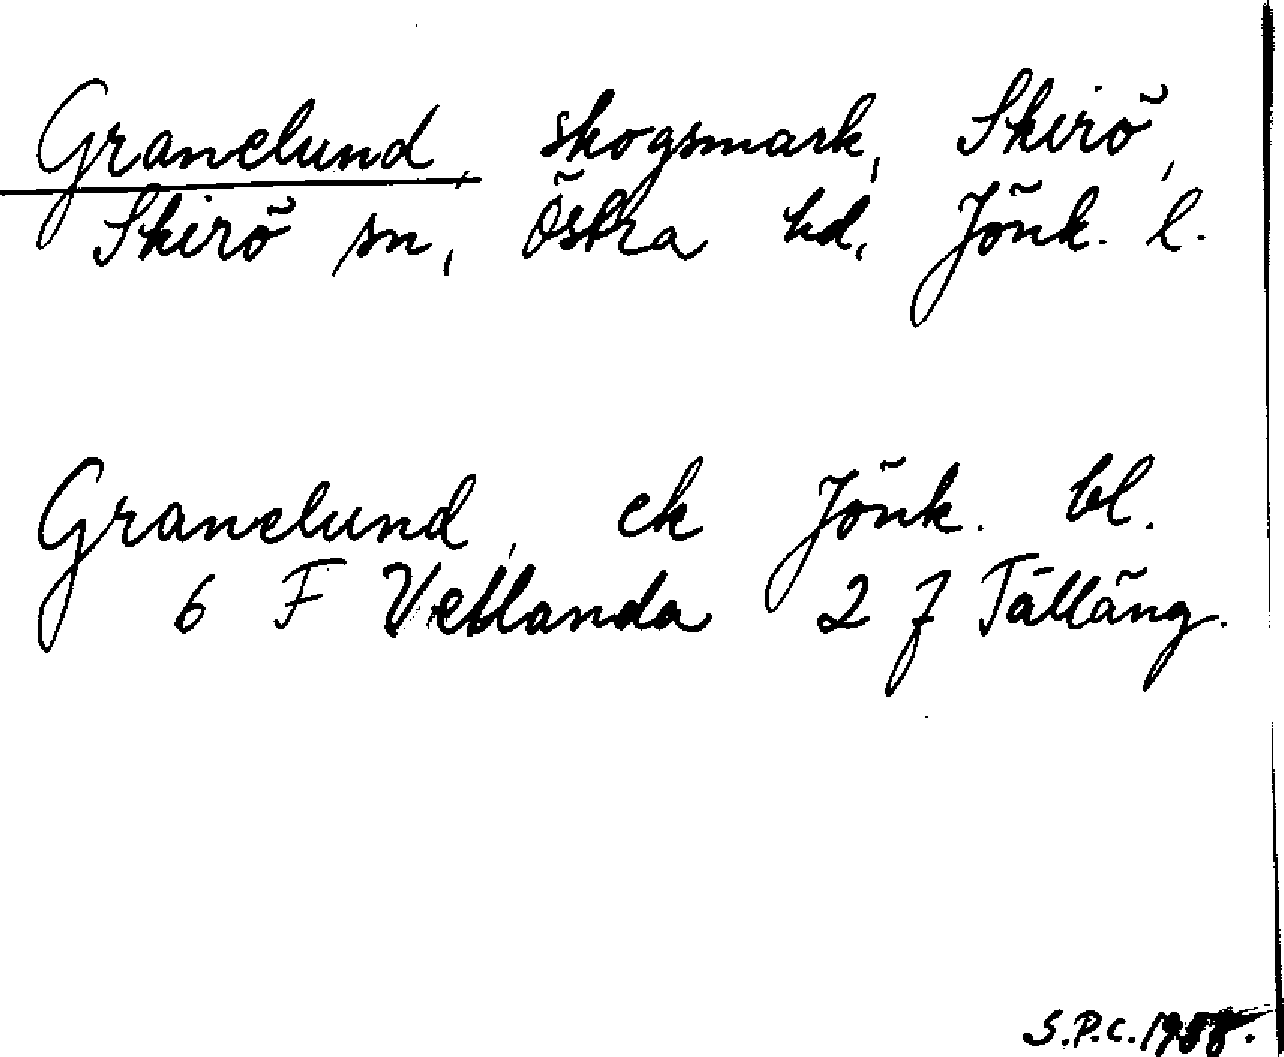 Granelund, skogsmark, Skirö,
Skirö sn, Östra hd, Jönk. l.
Granelund, ek Jönk. bl.
6 F Vetlanda 2 f Tälläng.
S.P.C. 1958.